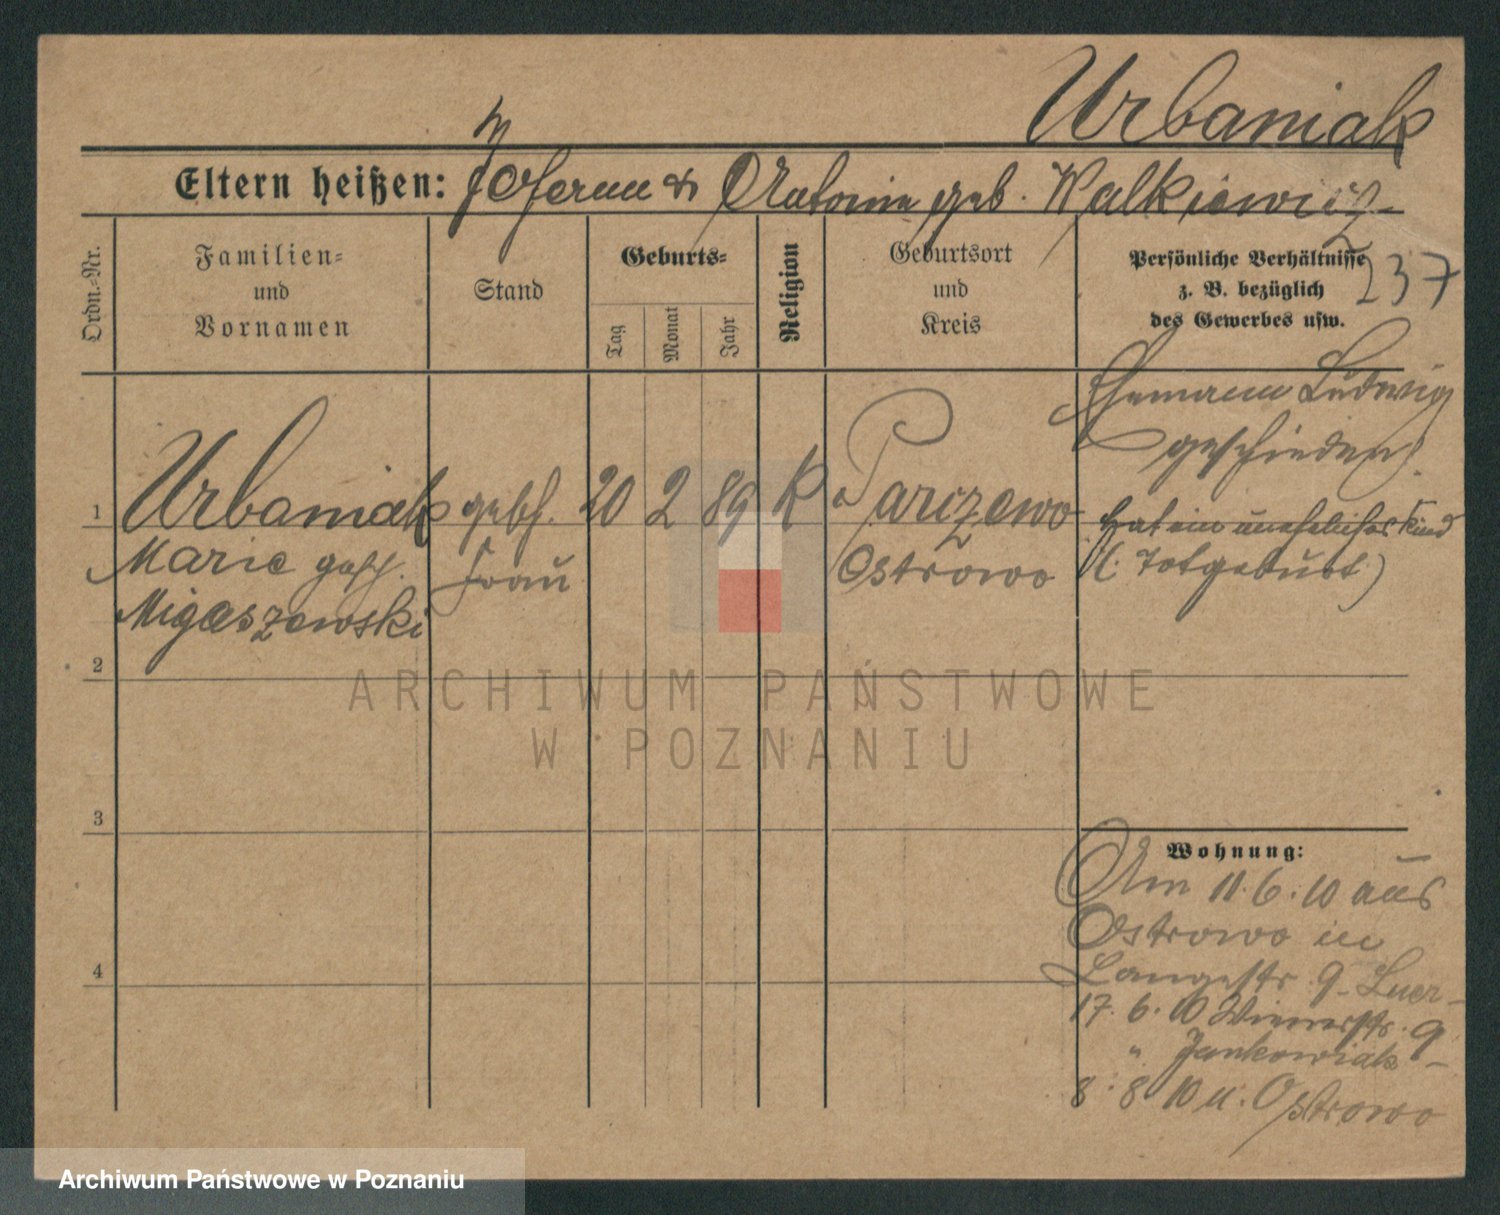 Urbaniak
Eltern heißen: Johann & Antonie geb. Walkiewicz
237
Ordn.-Nr.
Familien-
und
Vornamen
Stand
Geburts-
Tag
Monat
Jahr
Religion
Geburtsort
und
Kreis
Persönliche Verhältnisse
z. B. bezüglich
des Gewerbes usw.
Ehemann Ludwig
geschieden
1 Urbaniak gesch. 20 2 89 K Parczewo hat ein uneheliches Kind
Marie gesch. Frau Ostrowo (: Totgeburt)
Migaszewski
2
3
4
Wohnung:
Am 11.6.10 aus
Ostrowo in
Langestr. 9
17.6.10 Wienerstr. 9
" Jankowiak -
8.8 10 u. Ostrowo
ARCHIWUM PAŃSTWOWE
W POZNANIU
Archiwum Państwowe w Poznaniu